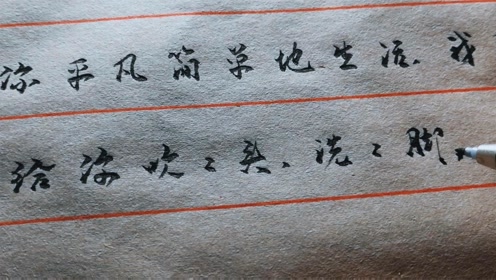 你平凡简单地生活.我
给你吹々、洗々脚